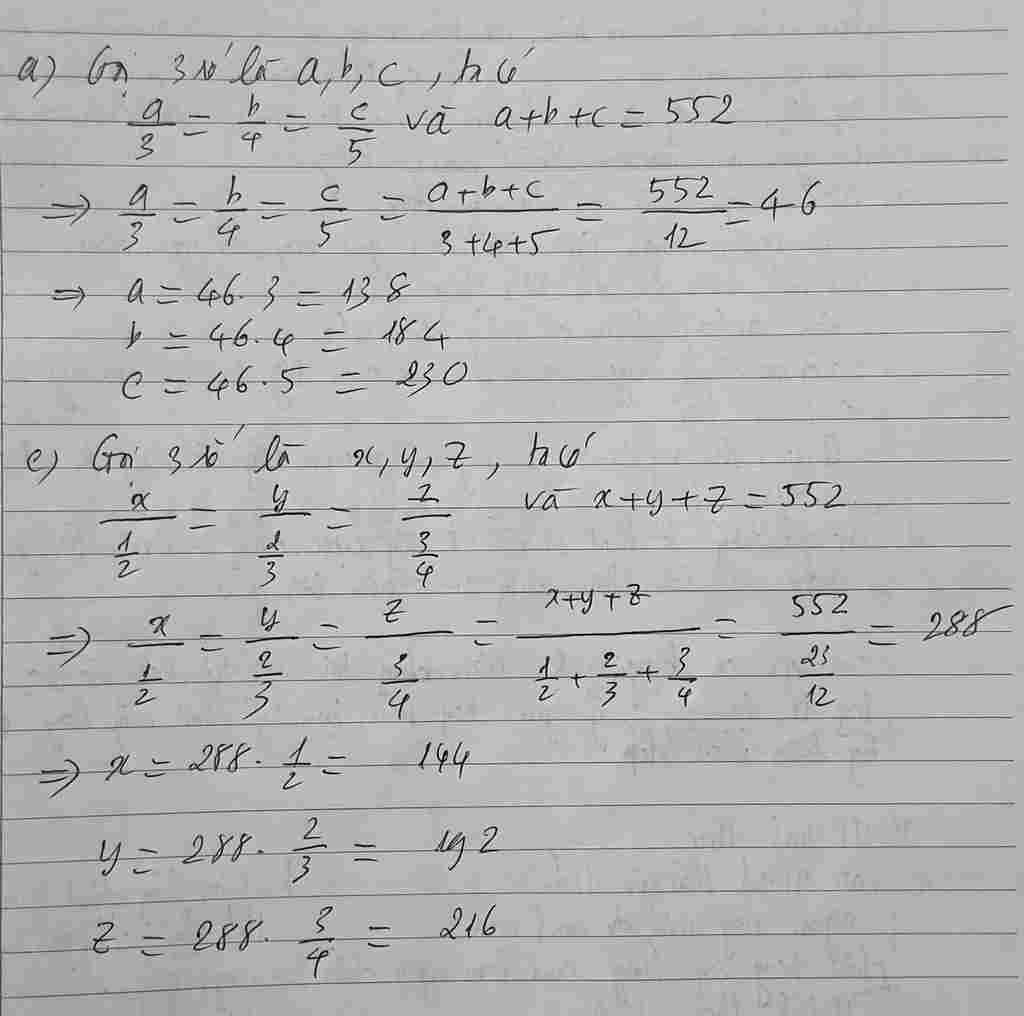 a) Gọi 3 số là a, b, c, ta có
a/3 = b/4 = c/5 và a+b+c = 552
⇒ a/3 = b/4 = c/5 = (a+b+c)/(3+4+5) = 552/12 = 46
⇒ a = 46.3 = 138
b = 46.4 = 184
c = 46.5 = 230
c) Gọi 3 số là x, y, z, ta có
x/(1/2) = y/(2/3) = z/(3/4) và x+y+z = 552
⇒ x/(1/2) = y/(2/3) = z/(3/4) = (x+y+z)/(1/2+2/3+3/4) = 552/(23/12) = 288
⇒ x = 288. 1/2 = 144
y = 288. 2/3 = 192
z = 288. 3/4 = 216